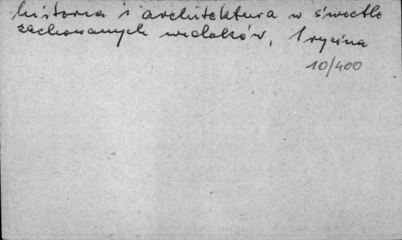 historia i architektura w świetle
zachowanych widoków, 1 rycina
10/400